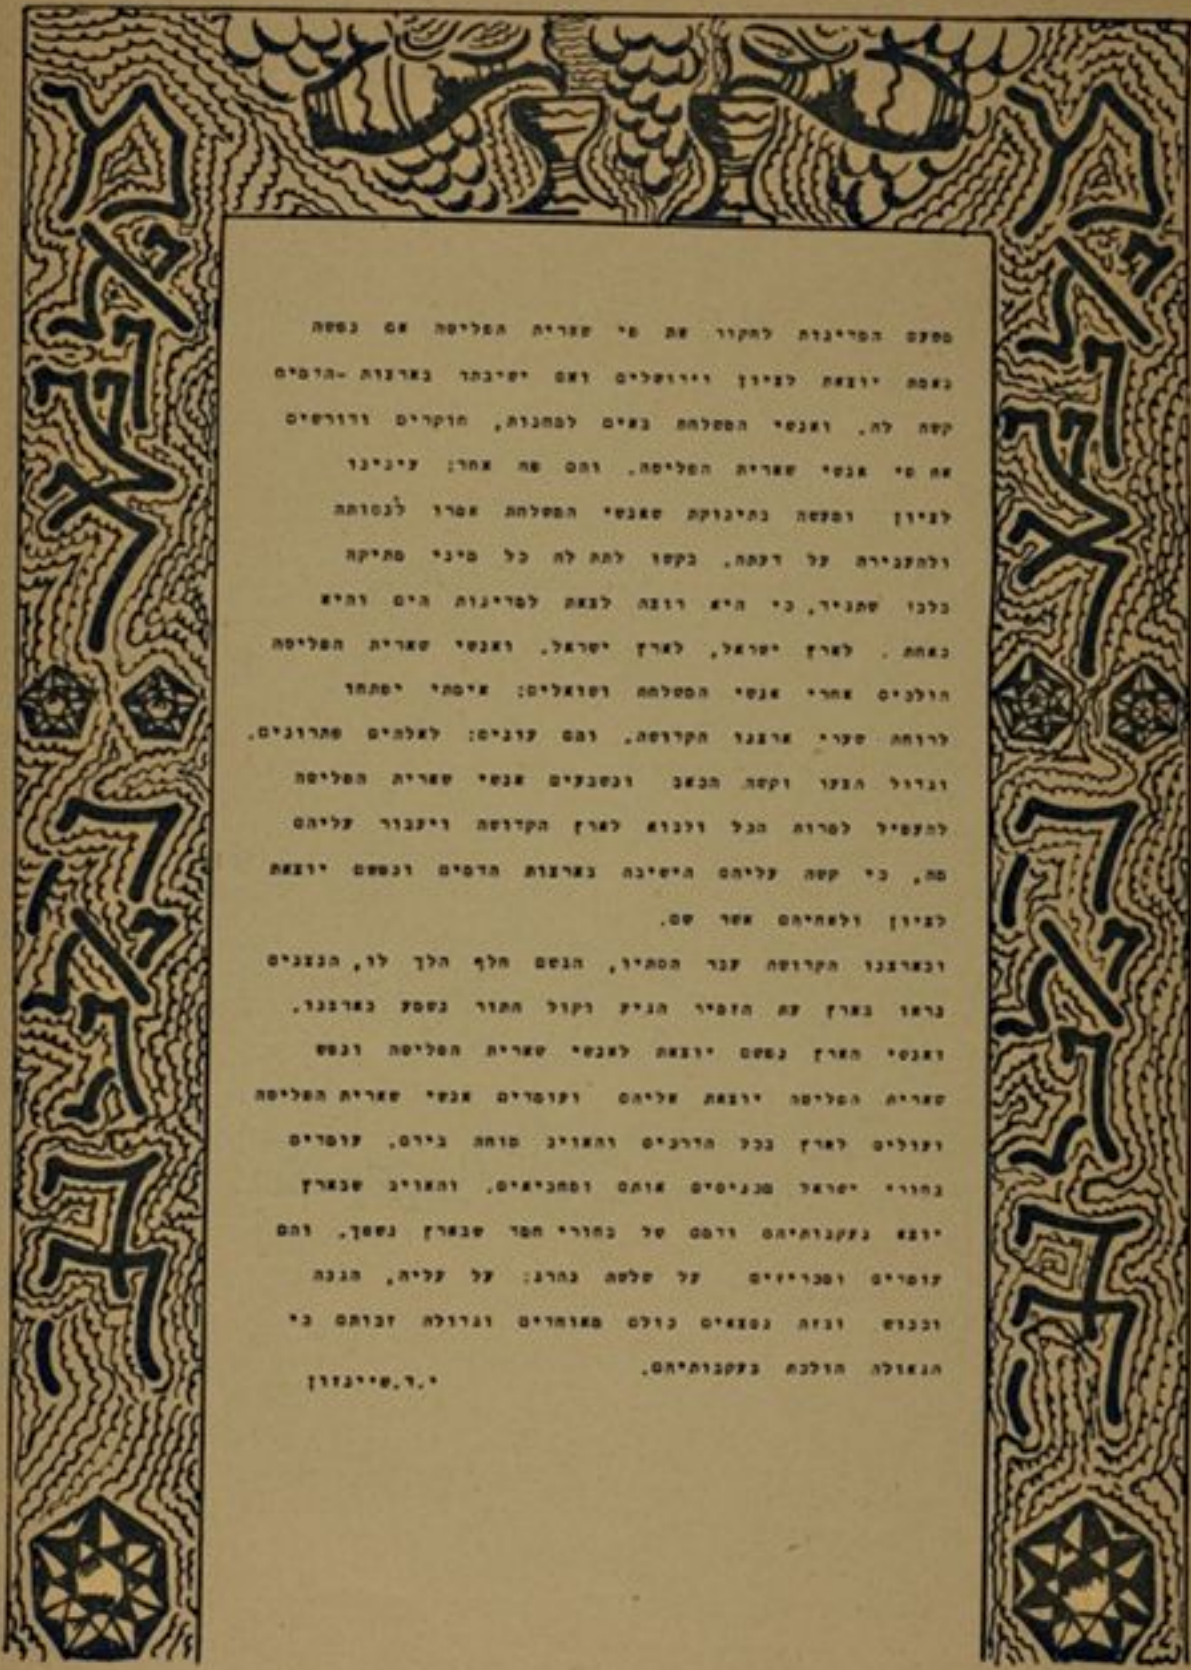 מטעם המדינות לחקור את פי שארית הפליטה אם נפשה
באמת יוצאת לציון וירושלים ואם ישיבתה בארצות-הדמים
קשה לה. ואנשי המשלחת באים למחנות, חוקרים ודורשים
את פי אנשי שארית הפליטה. והם פה אחד: עינינו
לציון ומעשה בתינוקת שאנשי המשלחת אמרו לנסותה
ולהעבירה על דעתה. בקשו לתת לה כל מיני מתיקה
בלבד שתגיד, כי היא רוצה לצאת למדינות הים והיא
באחת . לארץ ישראל, לארץ ישראל. ואנשי שארית הפליטה
הולכים אחרי אנשי המשלחת ושואלים: אימתי יפתחו
לרוחה שערי ארצנו הקדושה. והם עונים: לאלהים פתרונים.
וגדול הצער וקשה הכאב ונשבעים אנשי שארית הפליטה
להעפיל למרות הכל ולבוא לארץ הקדושה ויעבור עליהם
מה, כי קשה עליהם הישיבה בארצות הדמים ונפשם יוצאת
לציון ולאחיהם אשר שם.
ובארצנו הקדושה עבר הסתיו, הגשם חלף הלך לו, הנצנים
נראו בארץ עת הזמיר הגיע וקול התור נשמע בארצנו.
ואנשי הארץ נפשם יוצאת לאנשי שארית הפליטה ונפש
שארית הפליטה יוצאת אליהם ועומדים אנשי שארית הפליטה
ועולים לארץ בכל הדרכים והאויב מוחה בידם. עומדים
בחורי ישראל מכניסים אותם ומחביאים. והאויב שבארץ
יוצא בעקבותיהם ודמם של בחורי חמד שבארץ נשפך. והם
עומדים ומכריזים על שלשה נהרג: על עליה, הגנה
וכבוש ובזה נמצאים כולם מאוחדים וגדולה זכותם כי
הגאולה הולכת בעקבותיהם.
י.ד.שיינזון